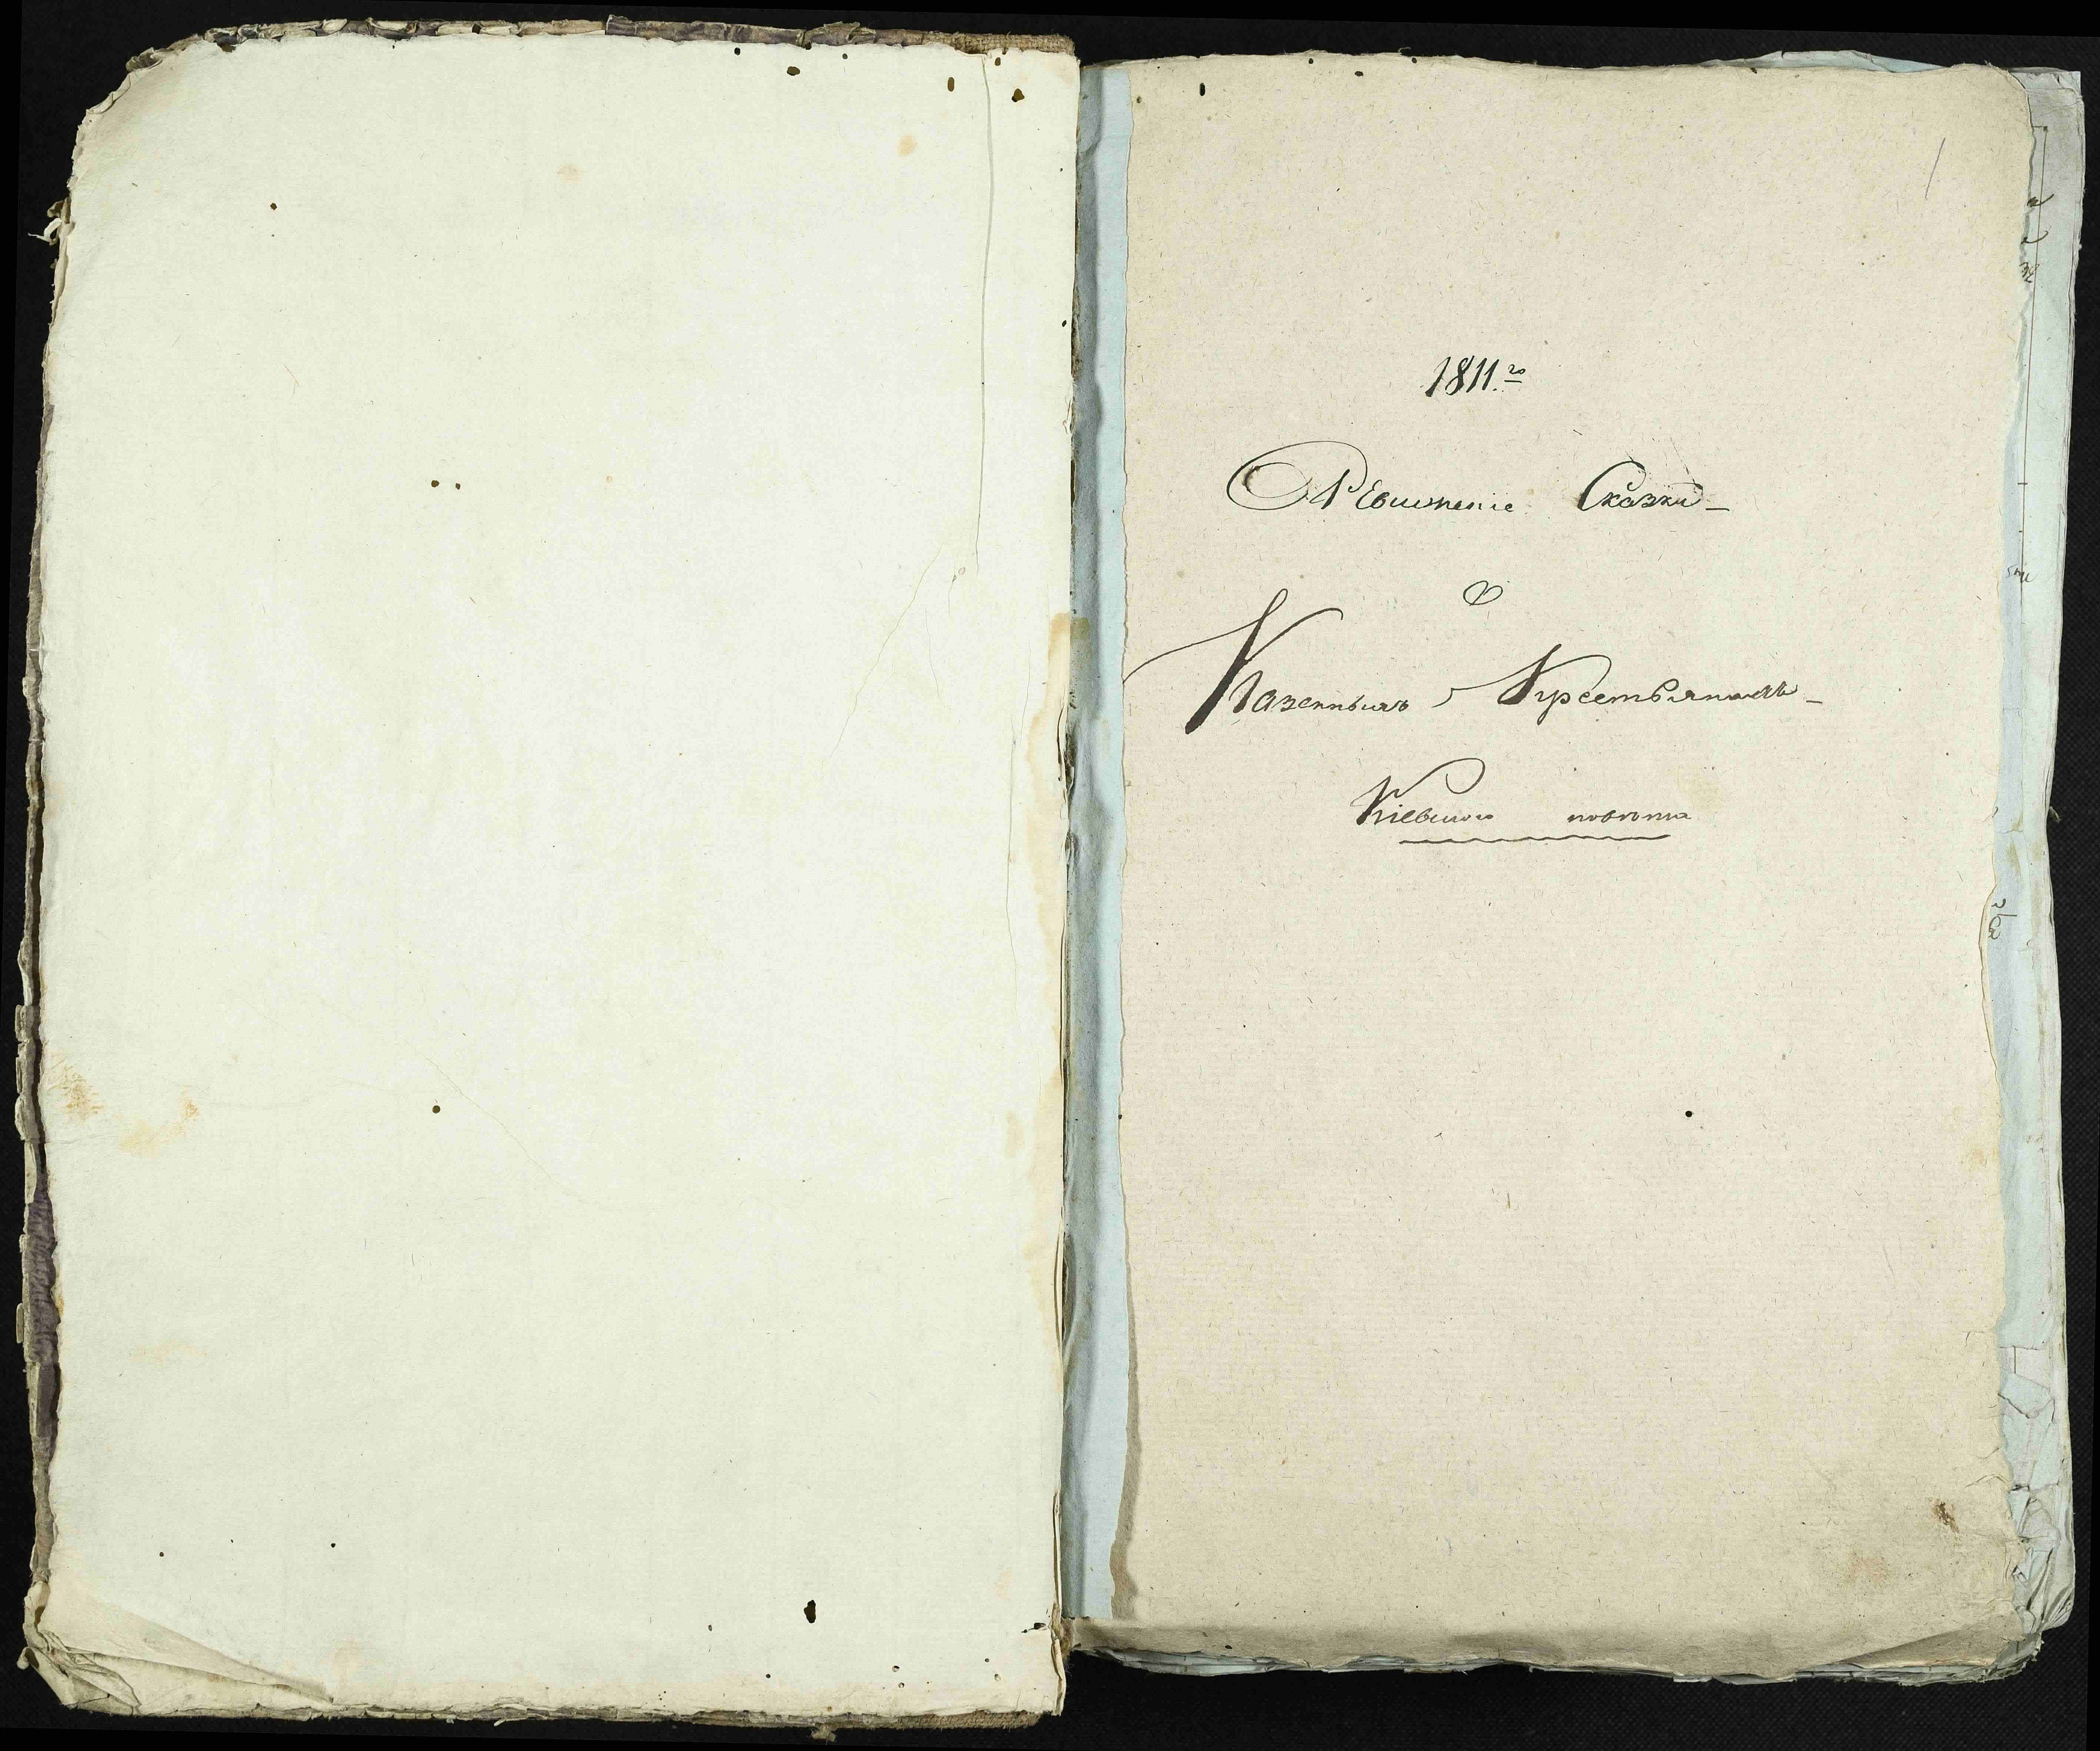 1
1811.го
Ревижскіе Сказки
О
Казенныхъ Крестьянахъ
Кіевского повѣта